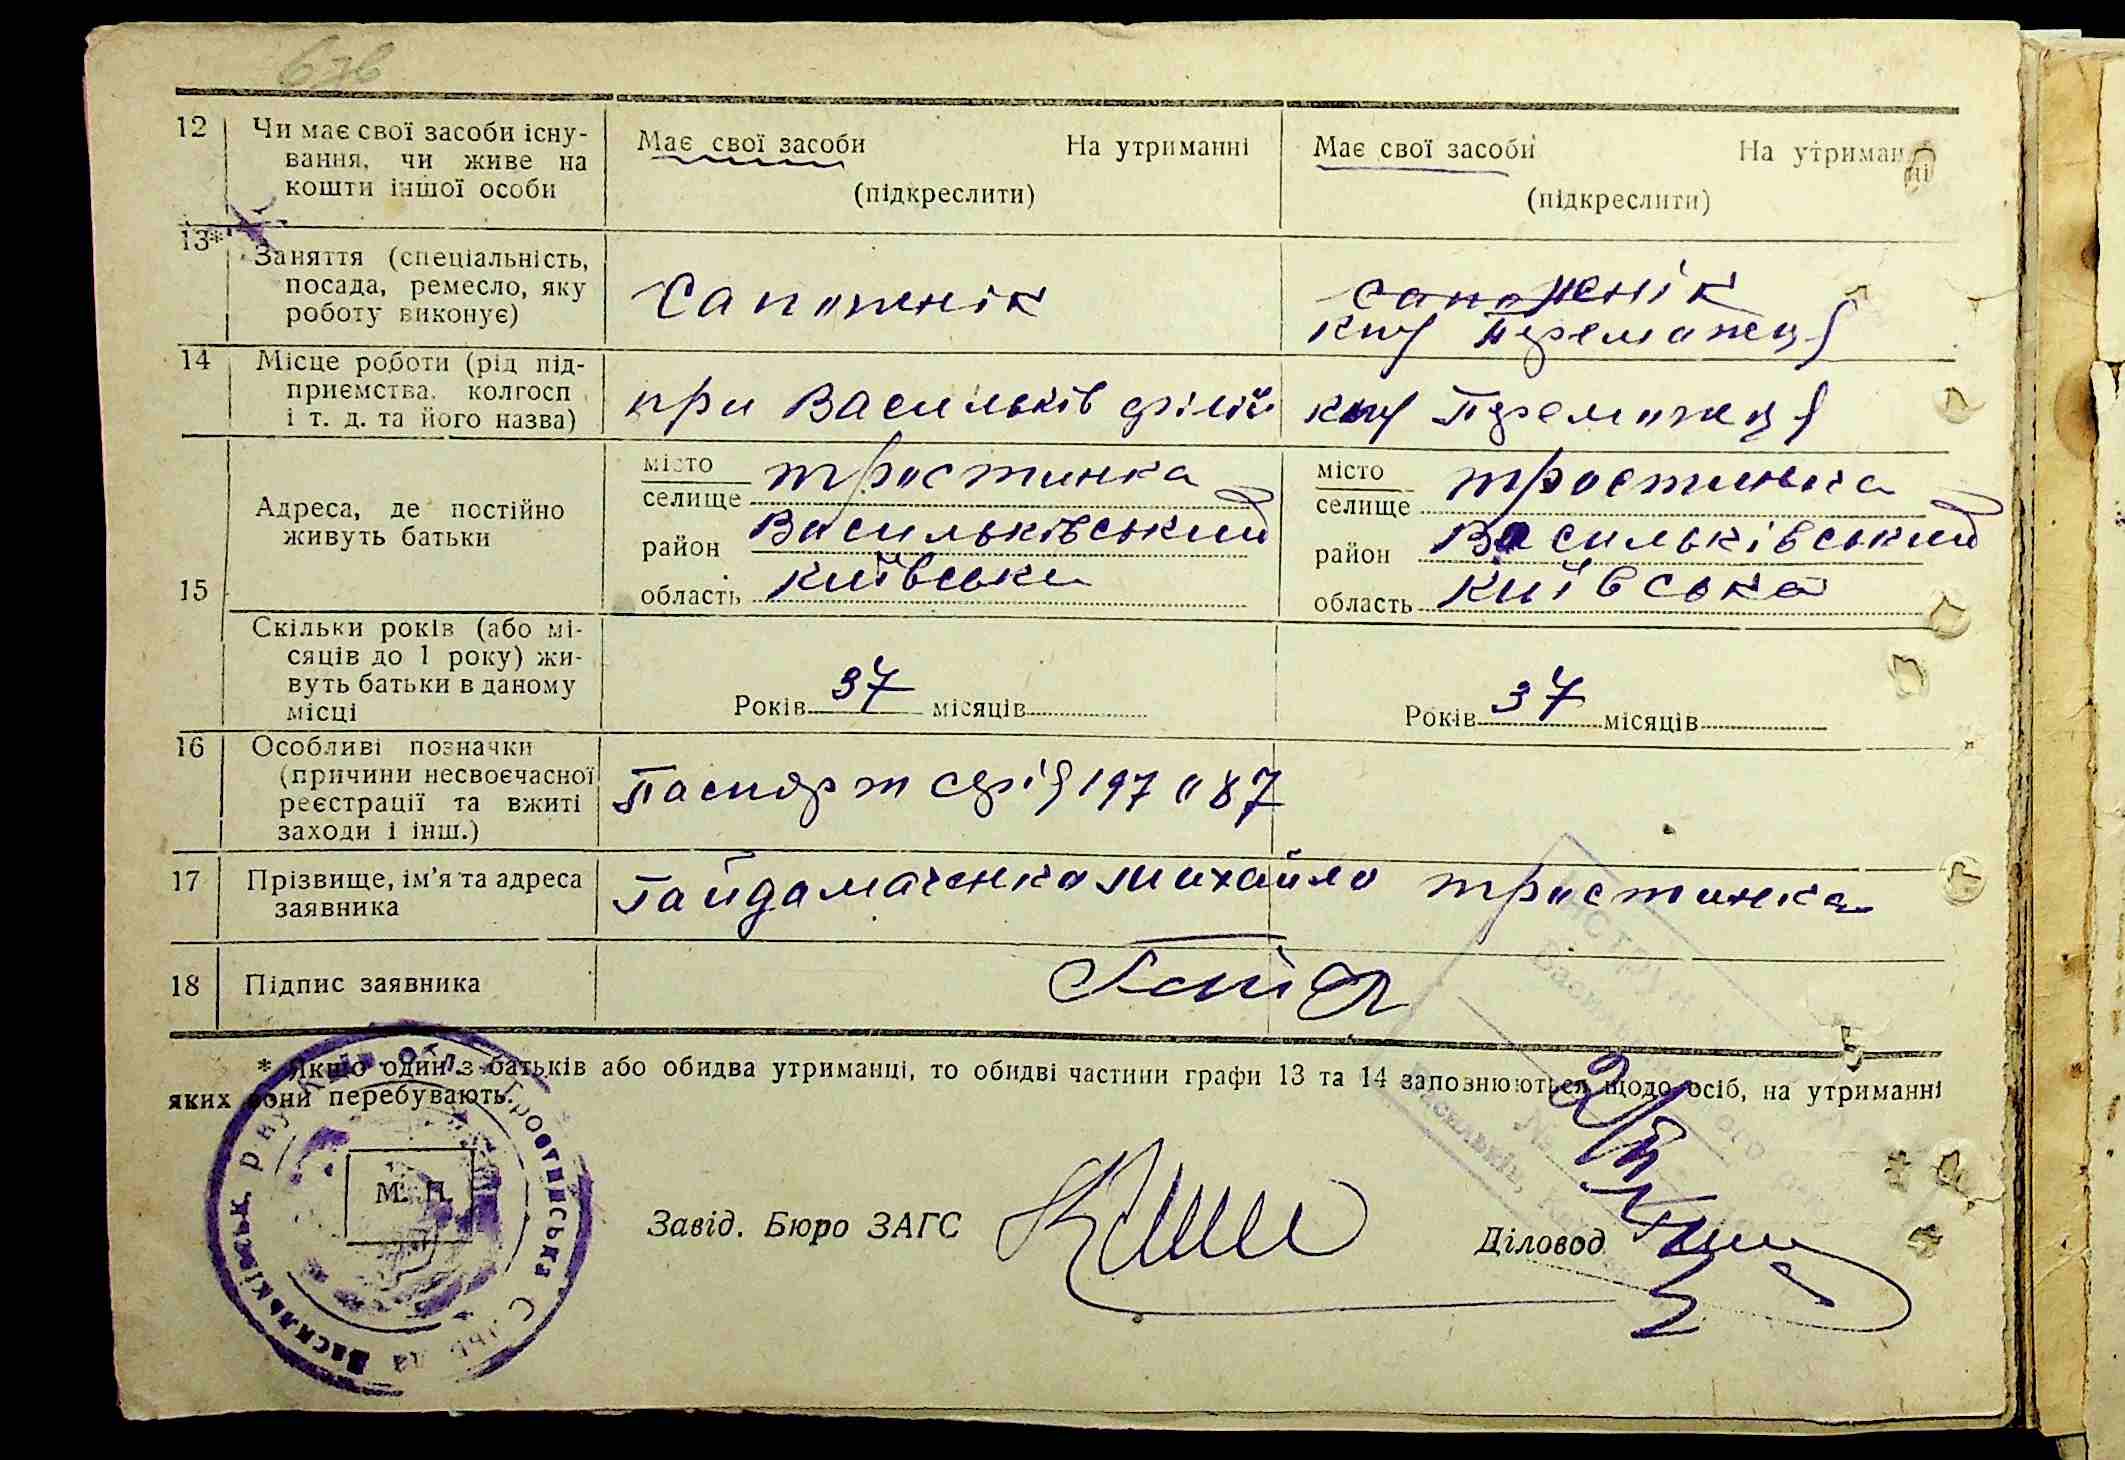 12 Чи має свої засоби існу-
вання, чи живе на
кошти іншої особи
Має свої засоби На утриманні
(підкреслити)
Має свої засоби На утриманні
(підкреслити)
13* Заняття (спеціальність,
посада, ремесло, яку
роботу виконує)
Сапожнік
сапожнік
14 Місце роботи (рід під-
приємства, колгосп
і т. д. та його назва)
при Васильків філії
15 Адреса, де постійно
живуть батьки
місто
селище тростинка
район Васильківський
область київська
місто
селище тростинка
район Васильківський
область київська
Скільки років (або мі-
сяців до 1 року) жи-
вуть батьки в даному
місці
Років 37 місяців
Років 37 місяців
16 Особливі позначки
(причини несвоєчасної
реєстрації та вжиті
заходи і інш.)
Паспорт серія 197087
17 Прізвище, ім'я та адреса
заявника
Гайдамаченко михайло тростинка
18 Підпис заявника
* Якщо один з батьків або обидва утриманці, то обидві частини графи 13 та 14 заповнюються щодо осіб, на утриманні
яких вони перебувають.
М. П.
Завід. Бюро ЗАГС
Діловод